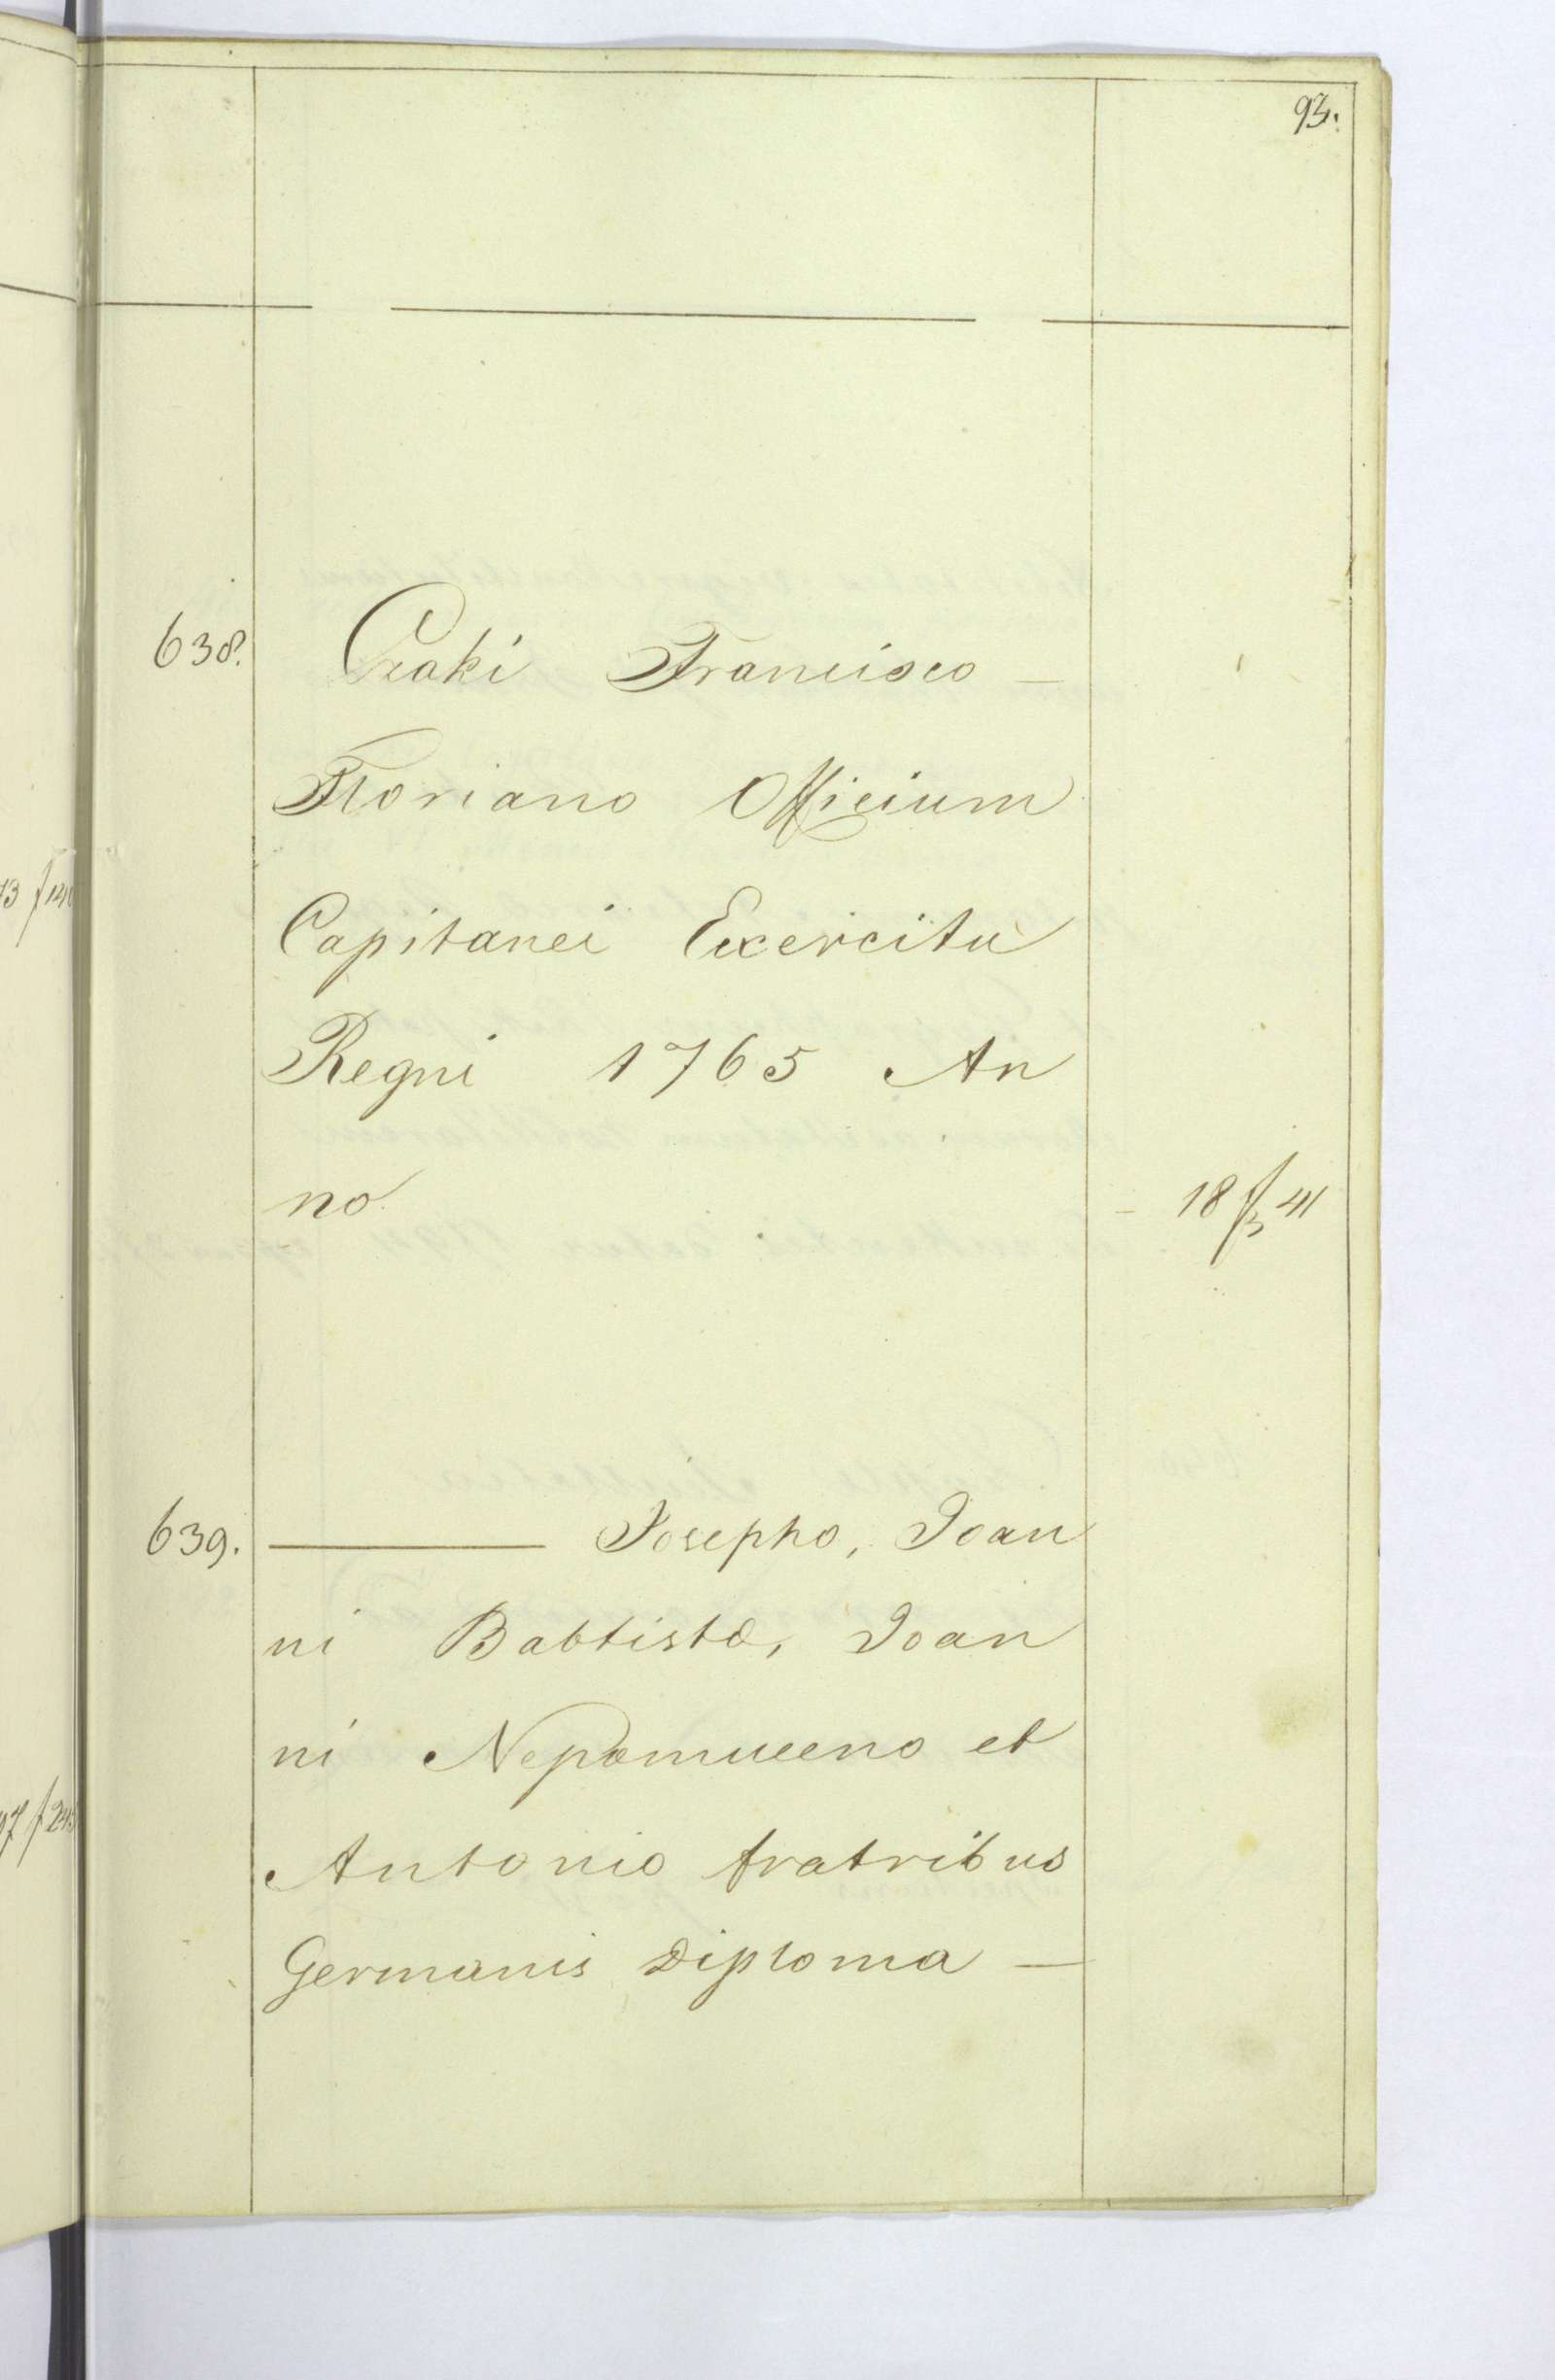 93.
638. Czaki Francisco —
Floriano Officium
Capitanei Exercitu
Regni 1765 An
no. - 18 f 41
639. ——— Josepho, Joan
ni Babtistæ, Joan
ni Nepomuceno et
Antonio fratribus
Germanis Diploma —